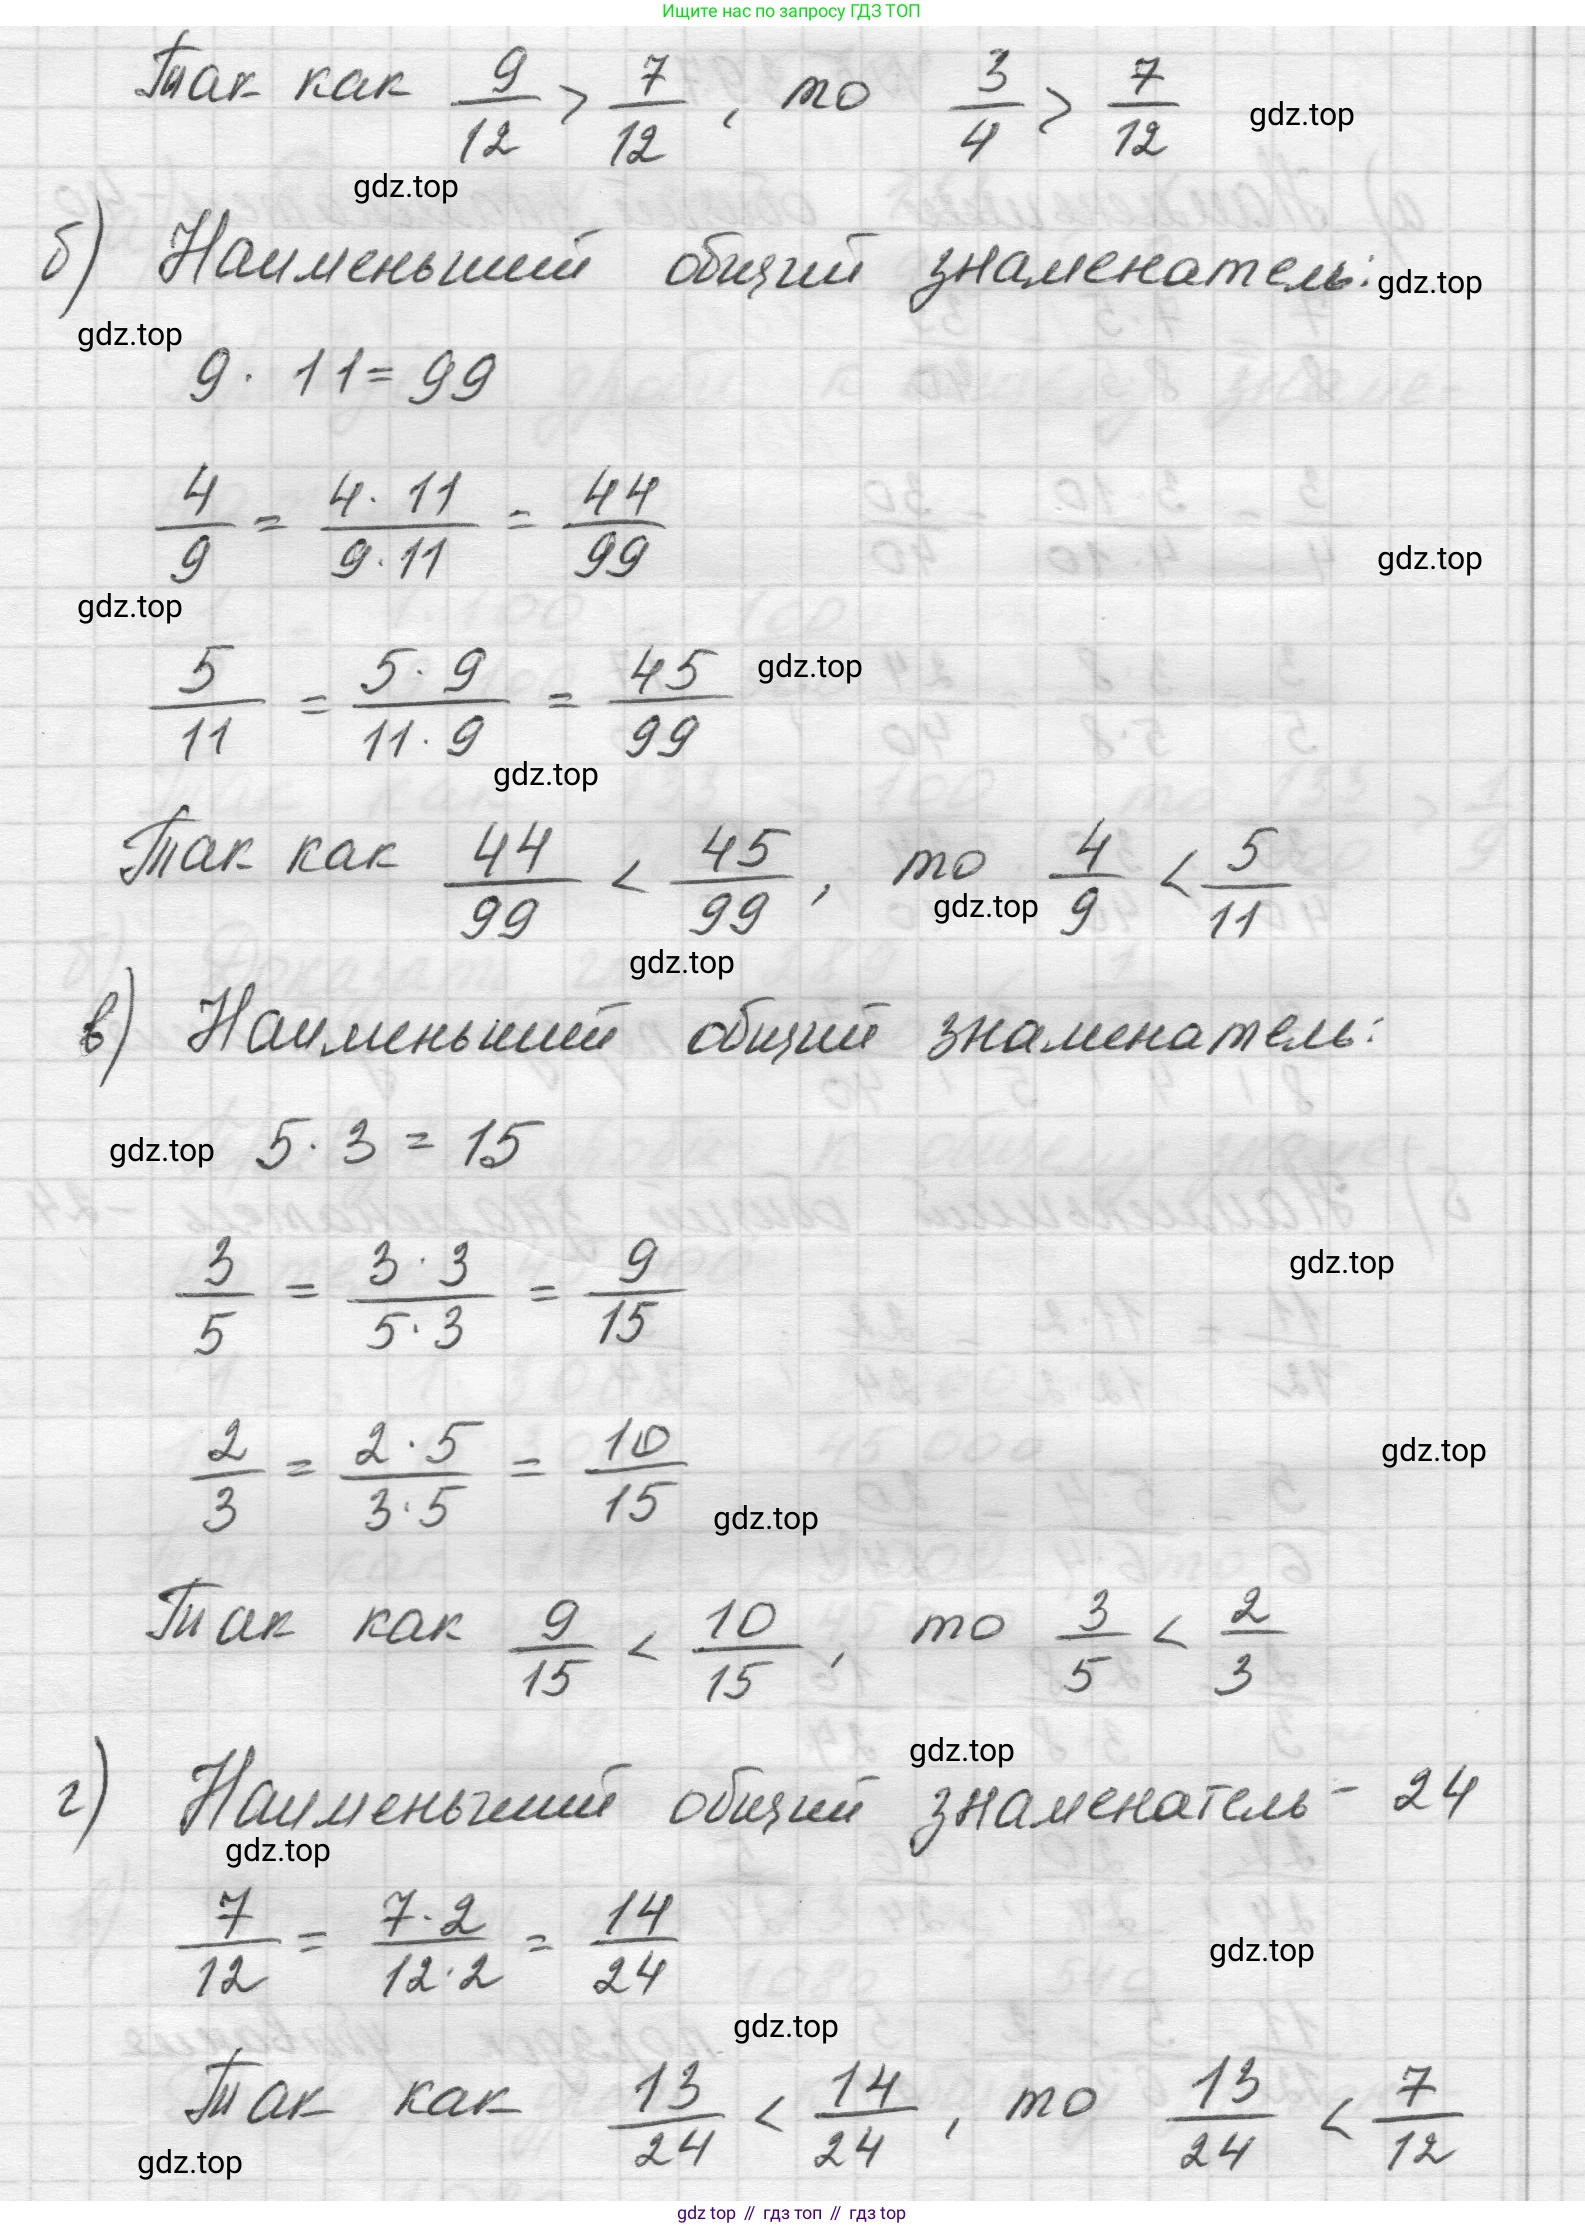 Ищите нас по запросу ГДЗ ТОП
Так как 9/12 > 7/12, то 3/4 > 7/12 gdz.top
gdz.top
б) Наименьший общий знаменатель: gdz.top
gdz.top
9 · 11 = 99
4/9 = 4·11/9·11 = 44/99
gdz.top
gdz.top
5/11 = 5·9/11·9 = 45/99 gdz.top
gdz.top
Так как 44/99 < 45/99, то 4/9 < 5/11
gdz.top
gdz.top
в) Наименьший общий знаменатель:
gdz.top 5 · 3 = 15
3/5 = 3·3/5·3 = 9/15 gdz.top
2/3 = 2·5/3·5 = 10/15 gdz.top
gdz.top
Так как 9/15 < 10/15, то 3/5 < 2/3
gdz.top
г) Наименьший общий знаменатель - 24
gdz.top
7/12 = 7·2/12·2 = 14/24 gdz.top
gdz.top
Так как 13/24 < 14/24, то 13/24 < 7/12
gdz.top
gdz top // гдз топ // gdz top